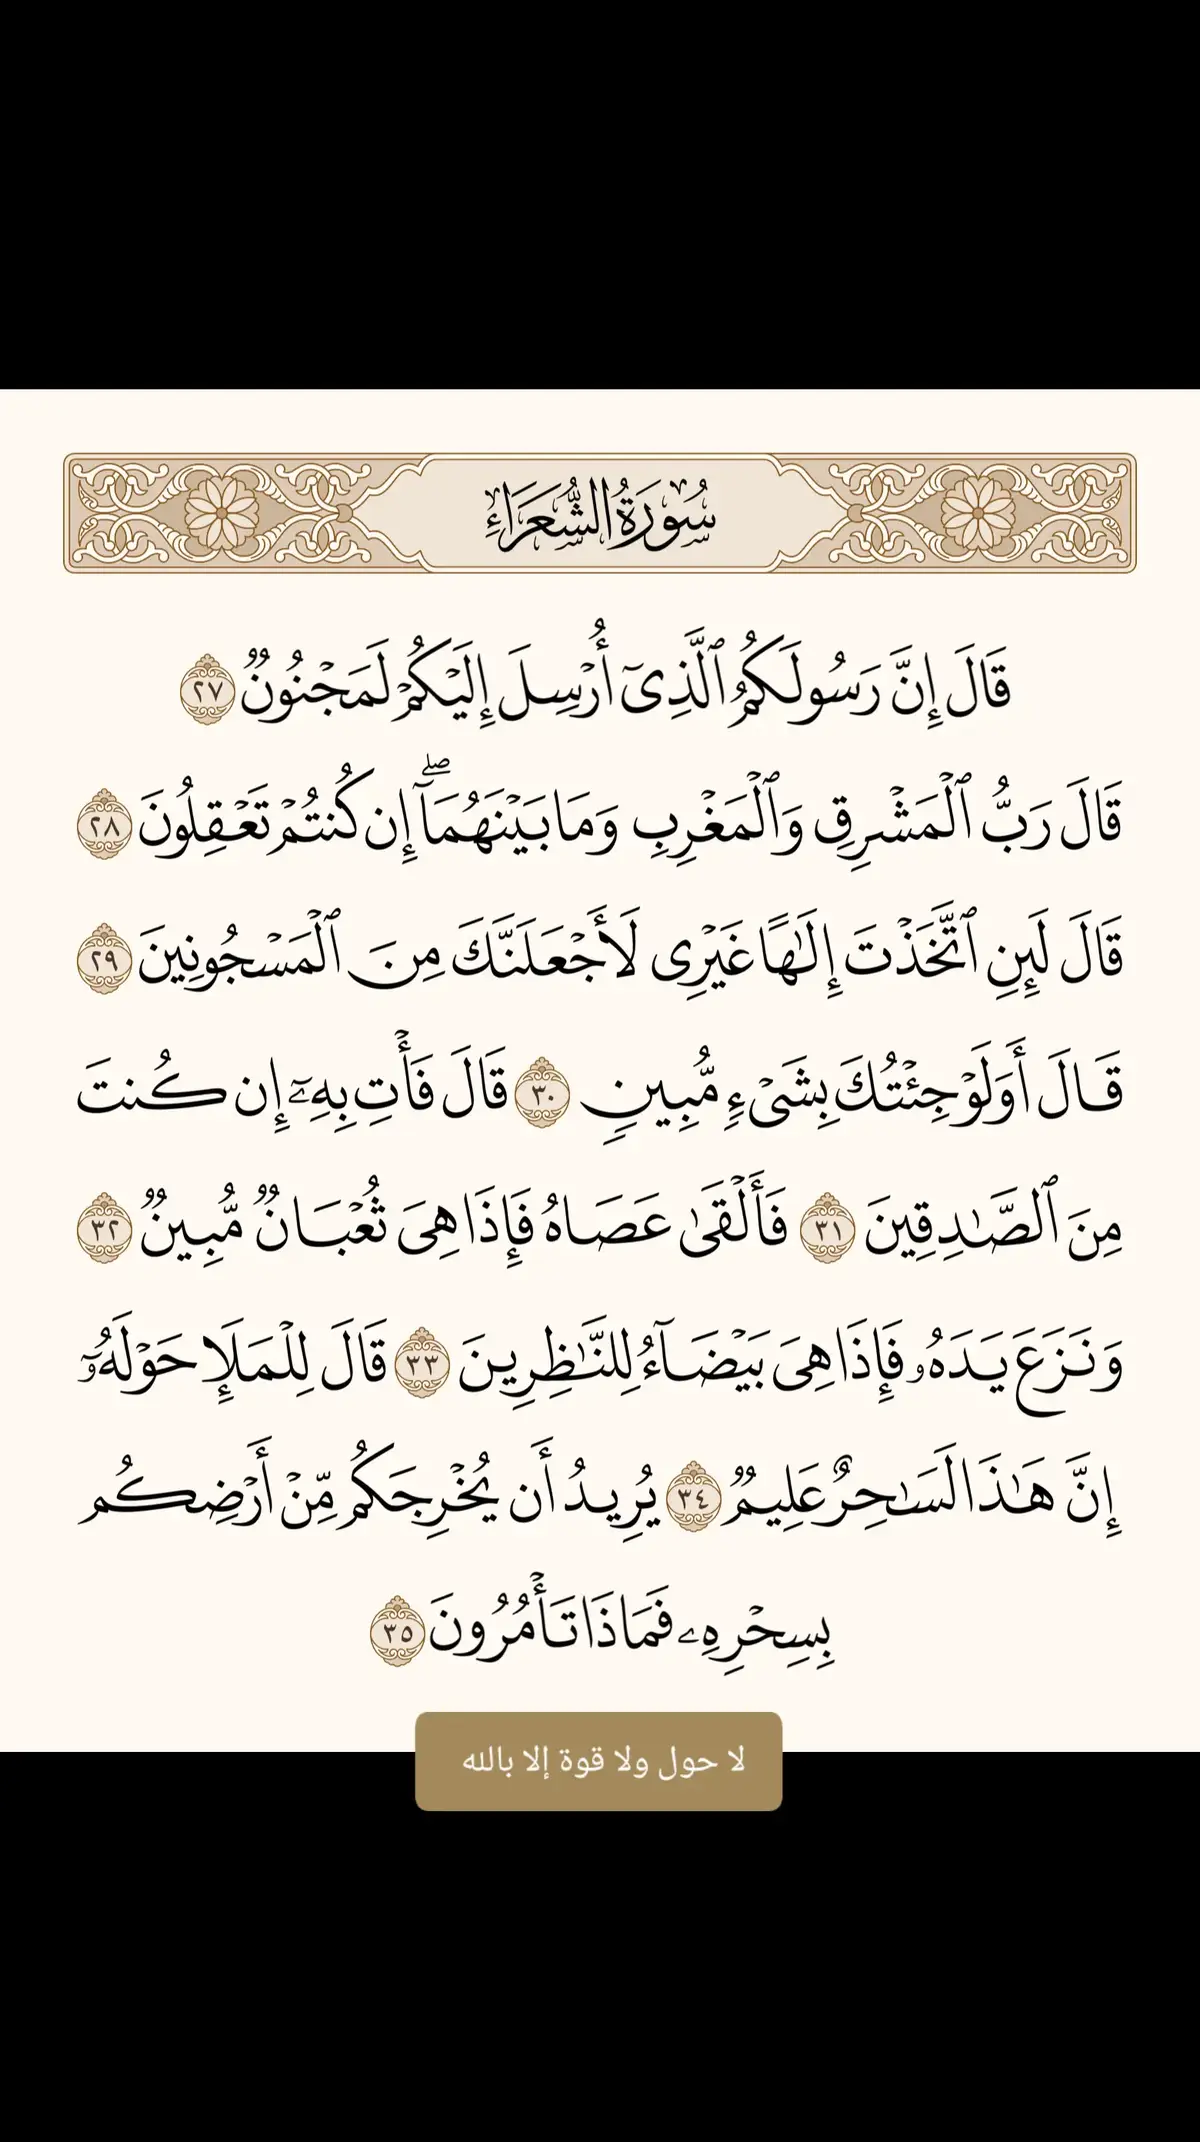 سُورَةُ الشُّعَرَاءِ
قَالَ إِنَّ رَسُولَكُمُ ٱلَّذِىٓ أُرۡسِلَ إِلَيۡكُمۡ لَمَجۡنُونٞ ٢٧
قَالَ رَبُّ ٱلۡمَشۡرِقِ وَٱلۡمَغۡرِبِ وَمَا بَيۡنَهُمَآۖ إِن كُنتُمۡ تَعۡقِلُونَ ٢٨
قَالَ لَئِنِ ٱتَّخَذۡتَ إِلَٰهًا غَيۡرِى لَأَجۡعَلَنَّكَ مِنَ ٱلۡمَسۡجُونِينَ ٢٩
قَالَ أَوَلَوۡ جِئۡتُكَ بِشَىۡءٖ مُّبِينٖ ٣٠ قَالَ فَأۡتِ بِهِۦٓ إِن كُنتَ
مِنَ ٱلصَّٰدِقِينَ ٣١ فَأَلۡقَىٰ عَصَاهُ فَإِذَا هِىَ ثُعۡبَانٞ مُّبِينٞ ٣٢
وَنَزَعَ يَدَهُۥ فَإِذَا هِىَ بَيۡضَآءُ لِلنَّٰظِرِينَ ٣٣ قَالَ لِلۡمَلَإِ حَوۡلَهُۥٓ
إِنَّ هَٰذَا لَسَٰحِرٌ عَلِيمٞ ٣٤ يُرِيدُ أَن يُخۡرِجَكُم مِّنۡ أَرۡضِكُم
بِسِحۡرِهِۦ فَمَاذَا تَأۡمُرُونَ ٣٥
لا حول ولا قوة إلا بالله